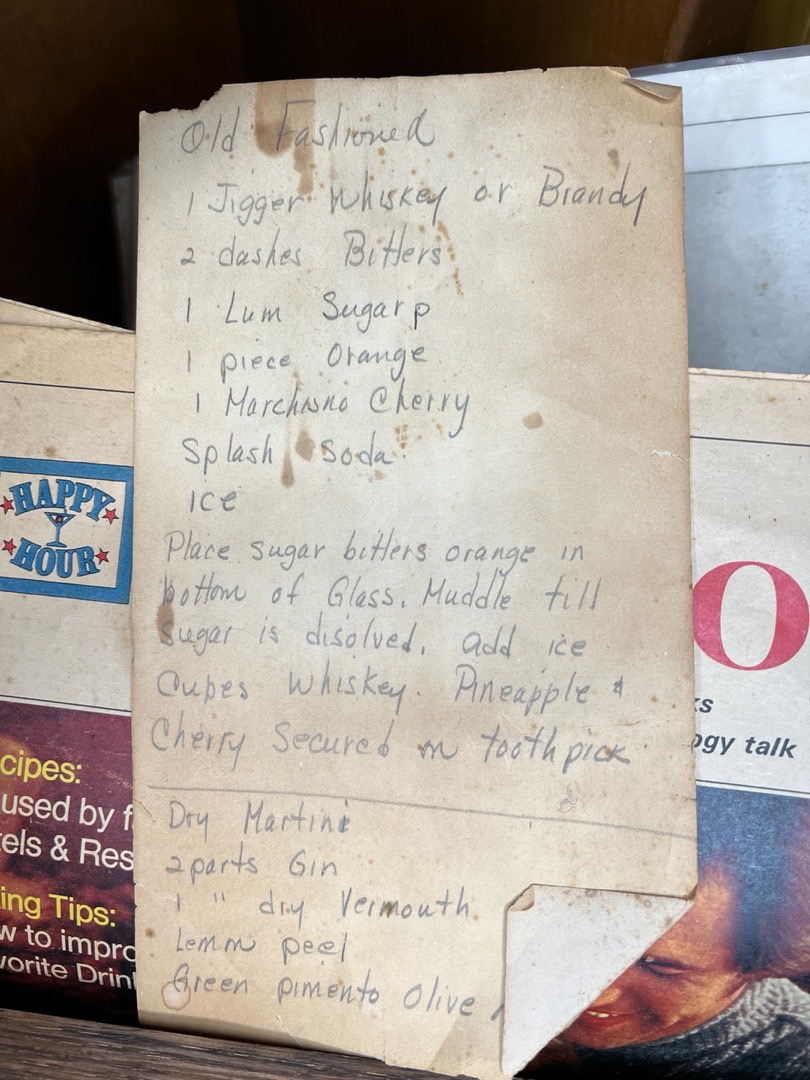 Old Fashioned
1 Jigger Whiskey or Brandy
2 dashes Bitters
1 Lum Sugar p
1 piece Orange
1 Marchisno Cherry
Splash Soda
ice
Place sugar bitters orange in
bottom of Glass. Muddle till
sugar is disolved. add ice
Cubes Whiskey. Pineapple &
Cherry Secured on toothpick
Dry Martini
2 parts Gin
1 " dry Vermouth
Lemon peel
Green pimento Olive
HAPPY
HOUR
cipes:
used by f
els & Res
ing Tips:
w to impro
vorite Drin
O
ks
ogy talk